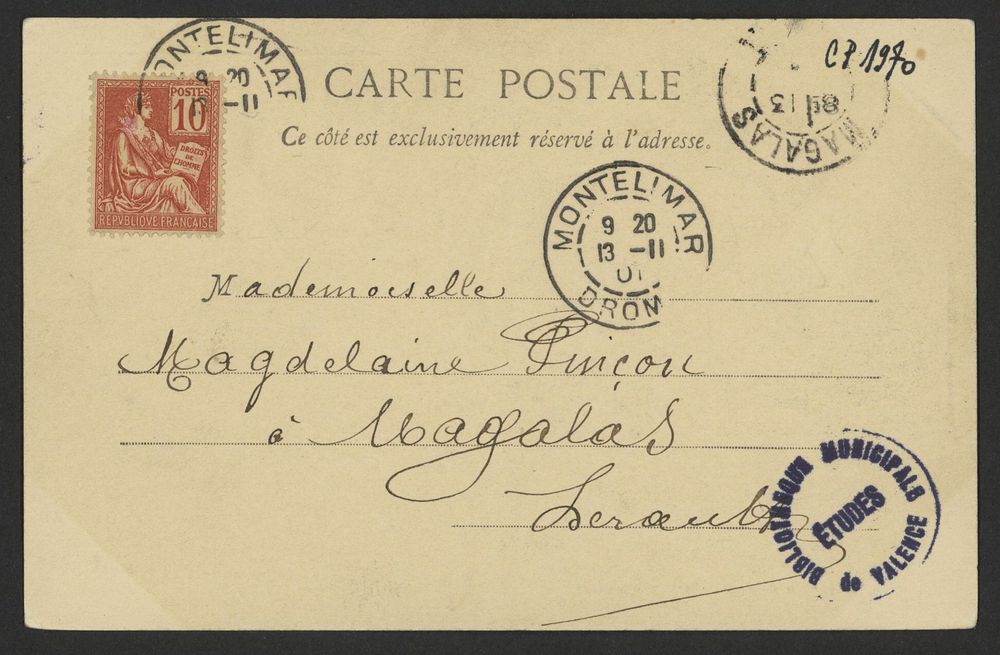 MONTELIMAR
9 20
-11
POSTES
10
DROITS
DE
L'HOMME
REPVBLIQVE FRANÇAISE
CP 1970
MAGALAS
13
CARTE POSTALE
Ce côté est exclusivement réservé à l'adresse.
MONTELIMAR
9 20
13 -11
01
DROM
Mademoiselle
Magdelaine Pinçon
à Magalas
Herault
BIBLIOTHEQUE MUNICIPALE
ÉTUDES
de VALENCE